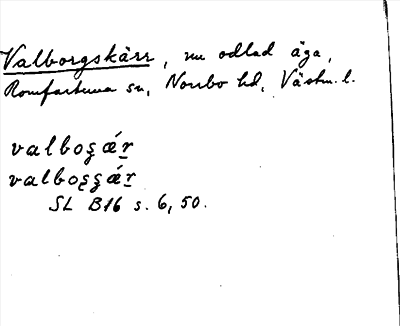 Valborgskärr, nu odlad äga,
Romfartuna sn, Norrbo hd, Västm. l.
valboʂǽr̠
valboʂʂǽr̠
SL B16 s. 6, 50.